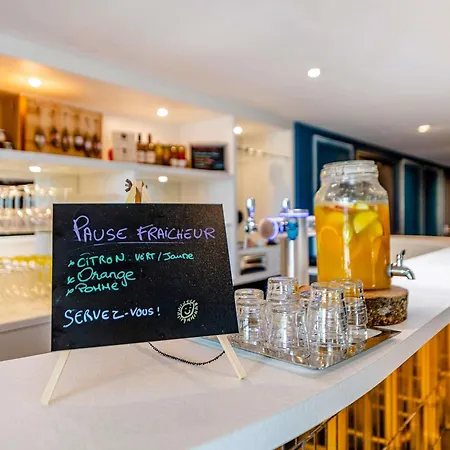 PAUSE FRAÎCHEUR
* CITRON VERT / JAUNE
* Orange
* POMME
SERVEZ-VOUS!